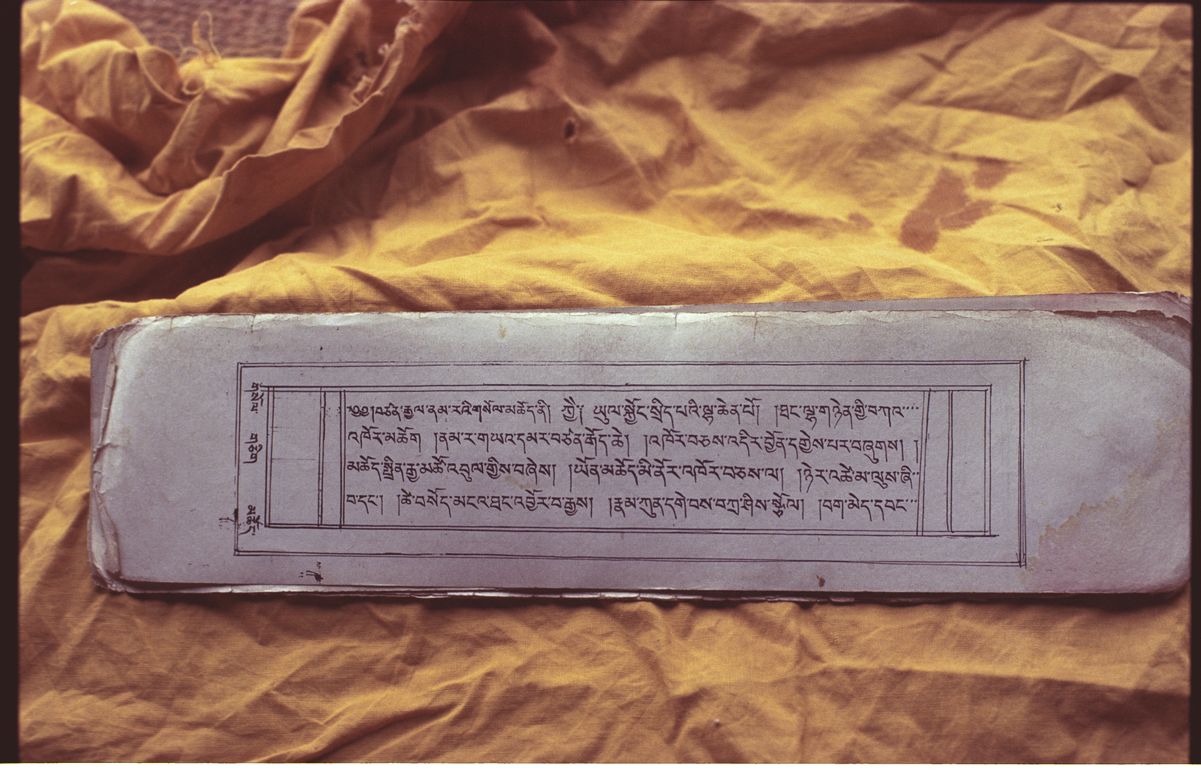 ༄༅། །བཙན་རྒྱལ་ནམ་རའི་གསོལ་མཆོད་ནི། ཀྱཻ། ཡུལ་སྐྱོང་སྲིད་པའི་ལྷ་ཆེན་པོ། །ཐང་ལྷ་གཉེན་གྱི་བཀའ་
འཁོར་མཆོག །ནམ་ར་གཡའ་དམར་བཙན་རྒོད་ཆེ། །འཁོར་བཅས་འདིར་བྱོན་དགྱེས་པར་བཞུགས། །
མཆོད་སྤྲིན་རྒྱ་མཚོ་འབུལ་གྱིས་བཞེས། །ཡོན་མཆོད་མི་ནོར་འཁོར་བཅས་ལ། །ཉེར་འཚེ་མ་ལུས་ཞི་
བ་དང་། །ཚེ་བསོད་མངའ་ཐང་འབྱོར་བ་རྒྱས། །རྣམ་ཀུན་དགེ་བས་བཀྲ་ཤིས་སྩོལ། །བག་མེད་དབང་
གཅིག